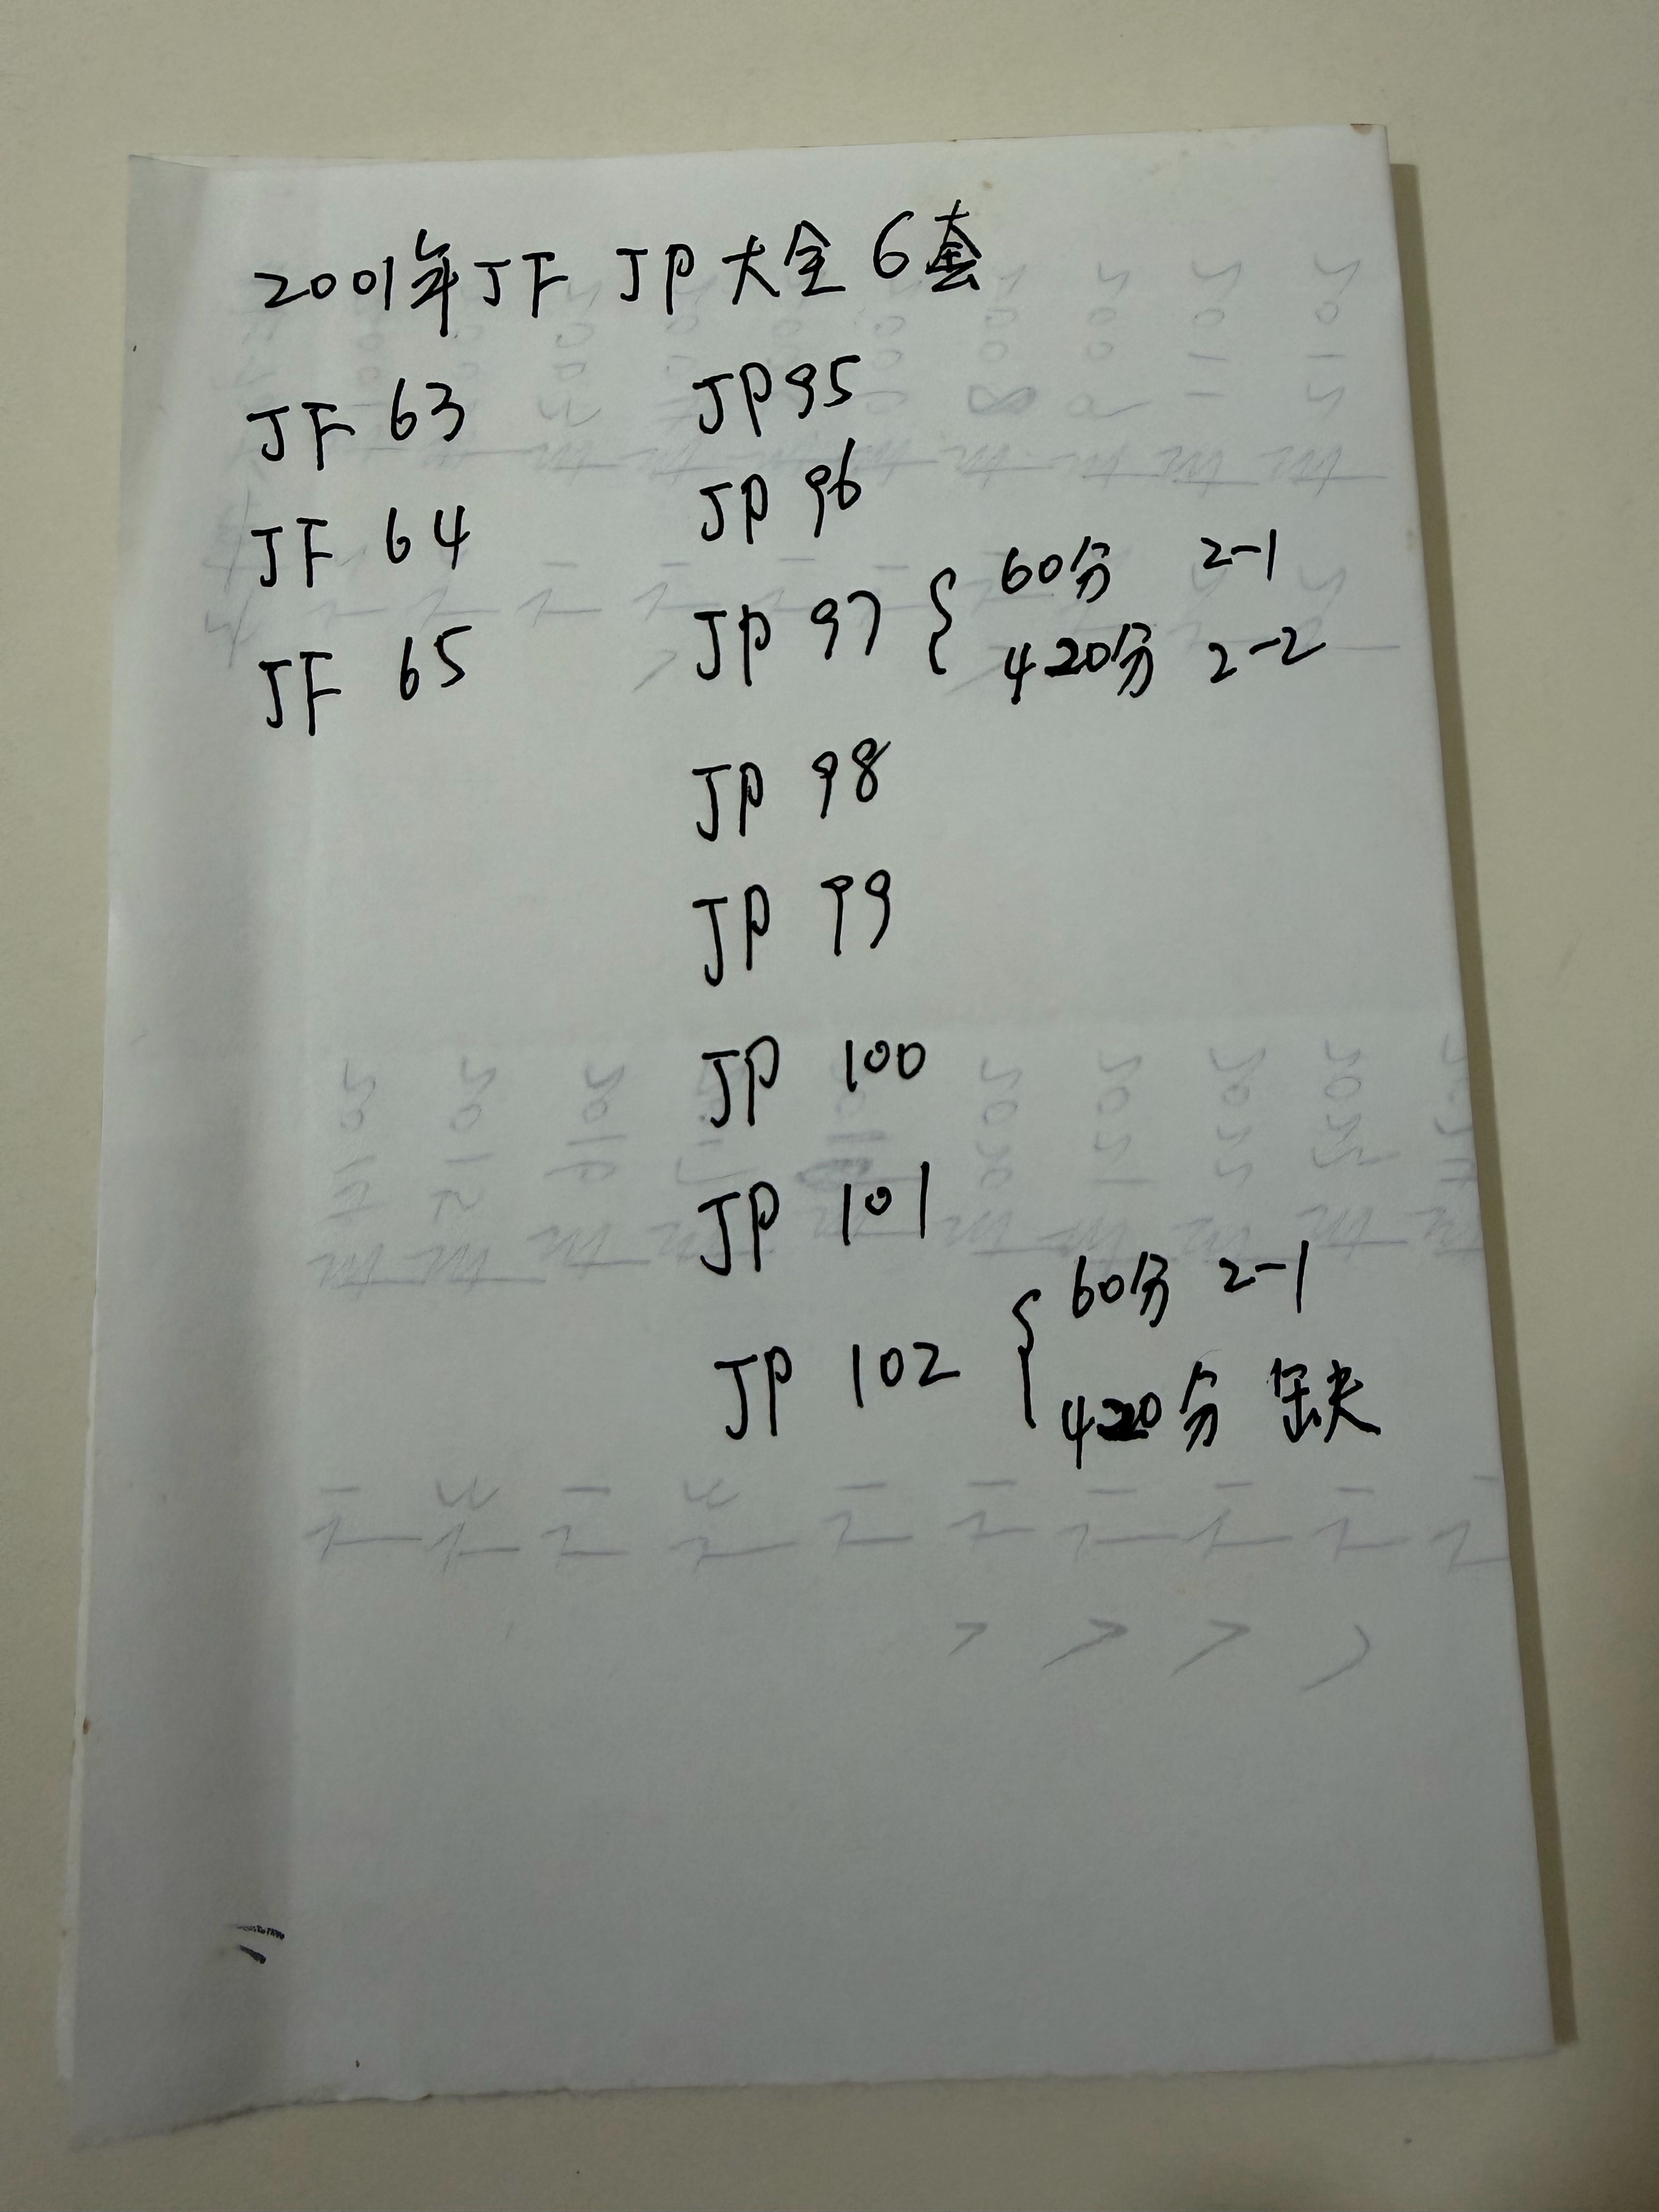 2001年JF JP大全6套
JF 63 JP95
JF 64 JP 96
JF 65 JP 97 { 60分 2-1
420分 2-2
JP 98
JP 99
JP 100
JP 101
JP 102 { 60分 2-1
420分 缺